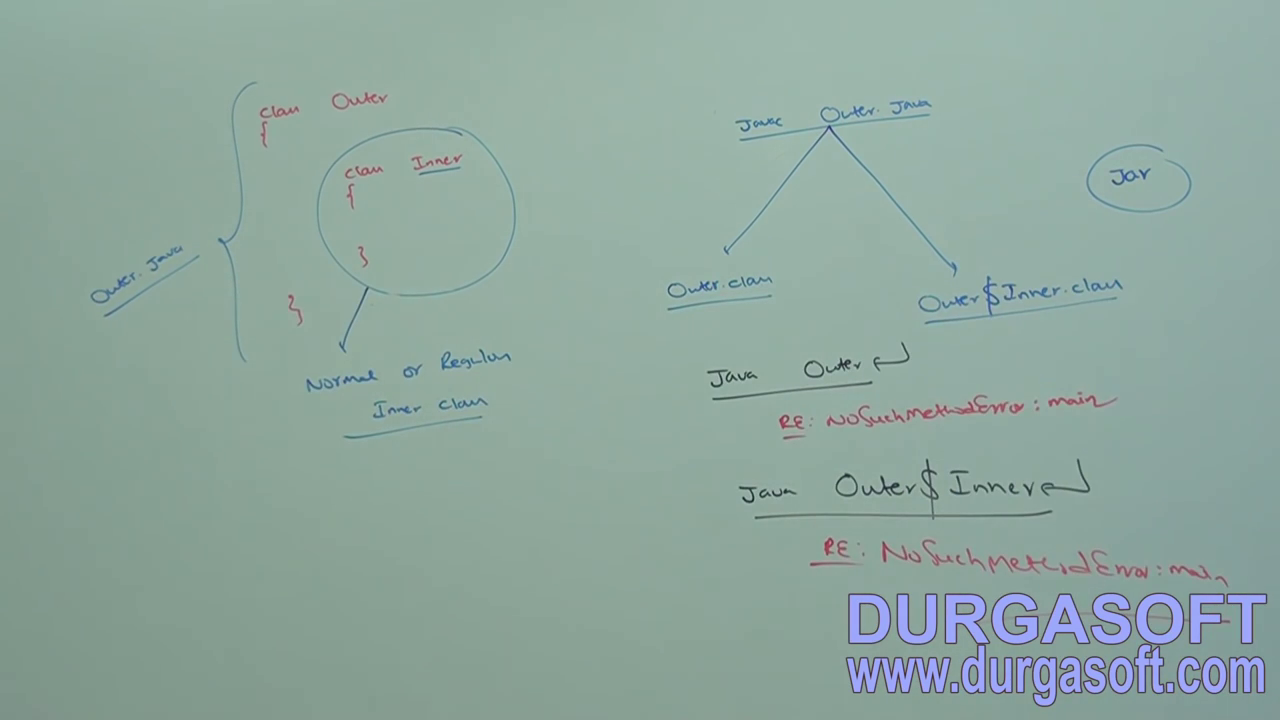 class Outer
{
class Inner
{
}
}
Outer.java
Normal or Regular
Inner class
Javac Outer.Java
Jar
Outer.class
Outer$Inner.class
Java Outer
RE: NoSuchMethodError: main
Java Outer$Inner
RE: NoSuchMethodError: main
DURGASOFT
www.durgasoft.com